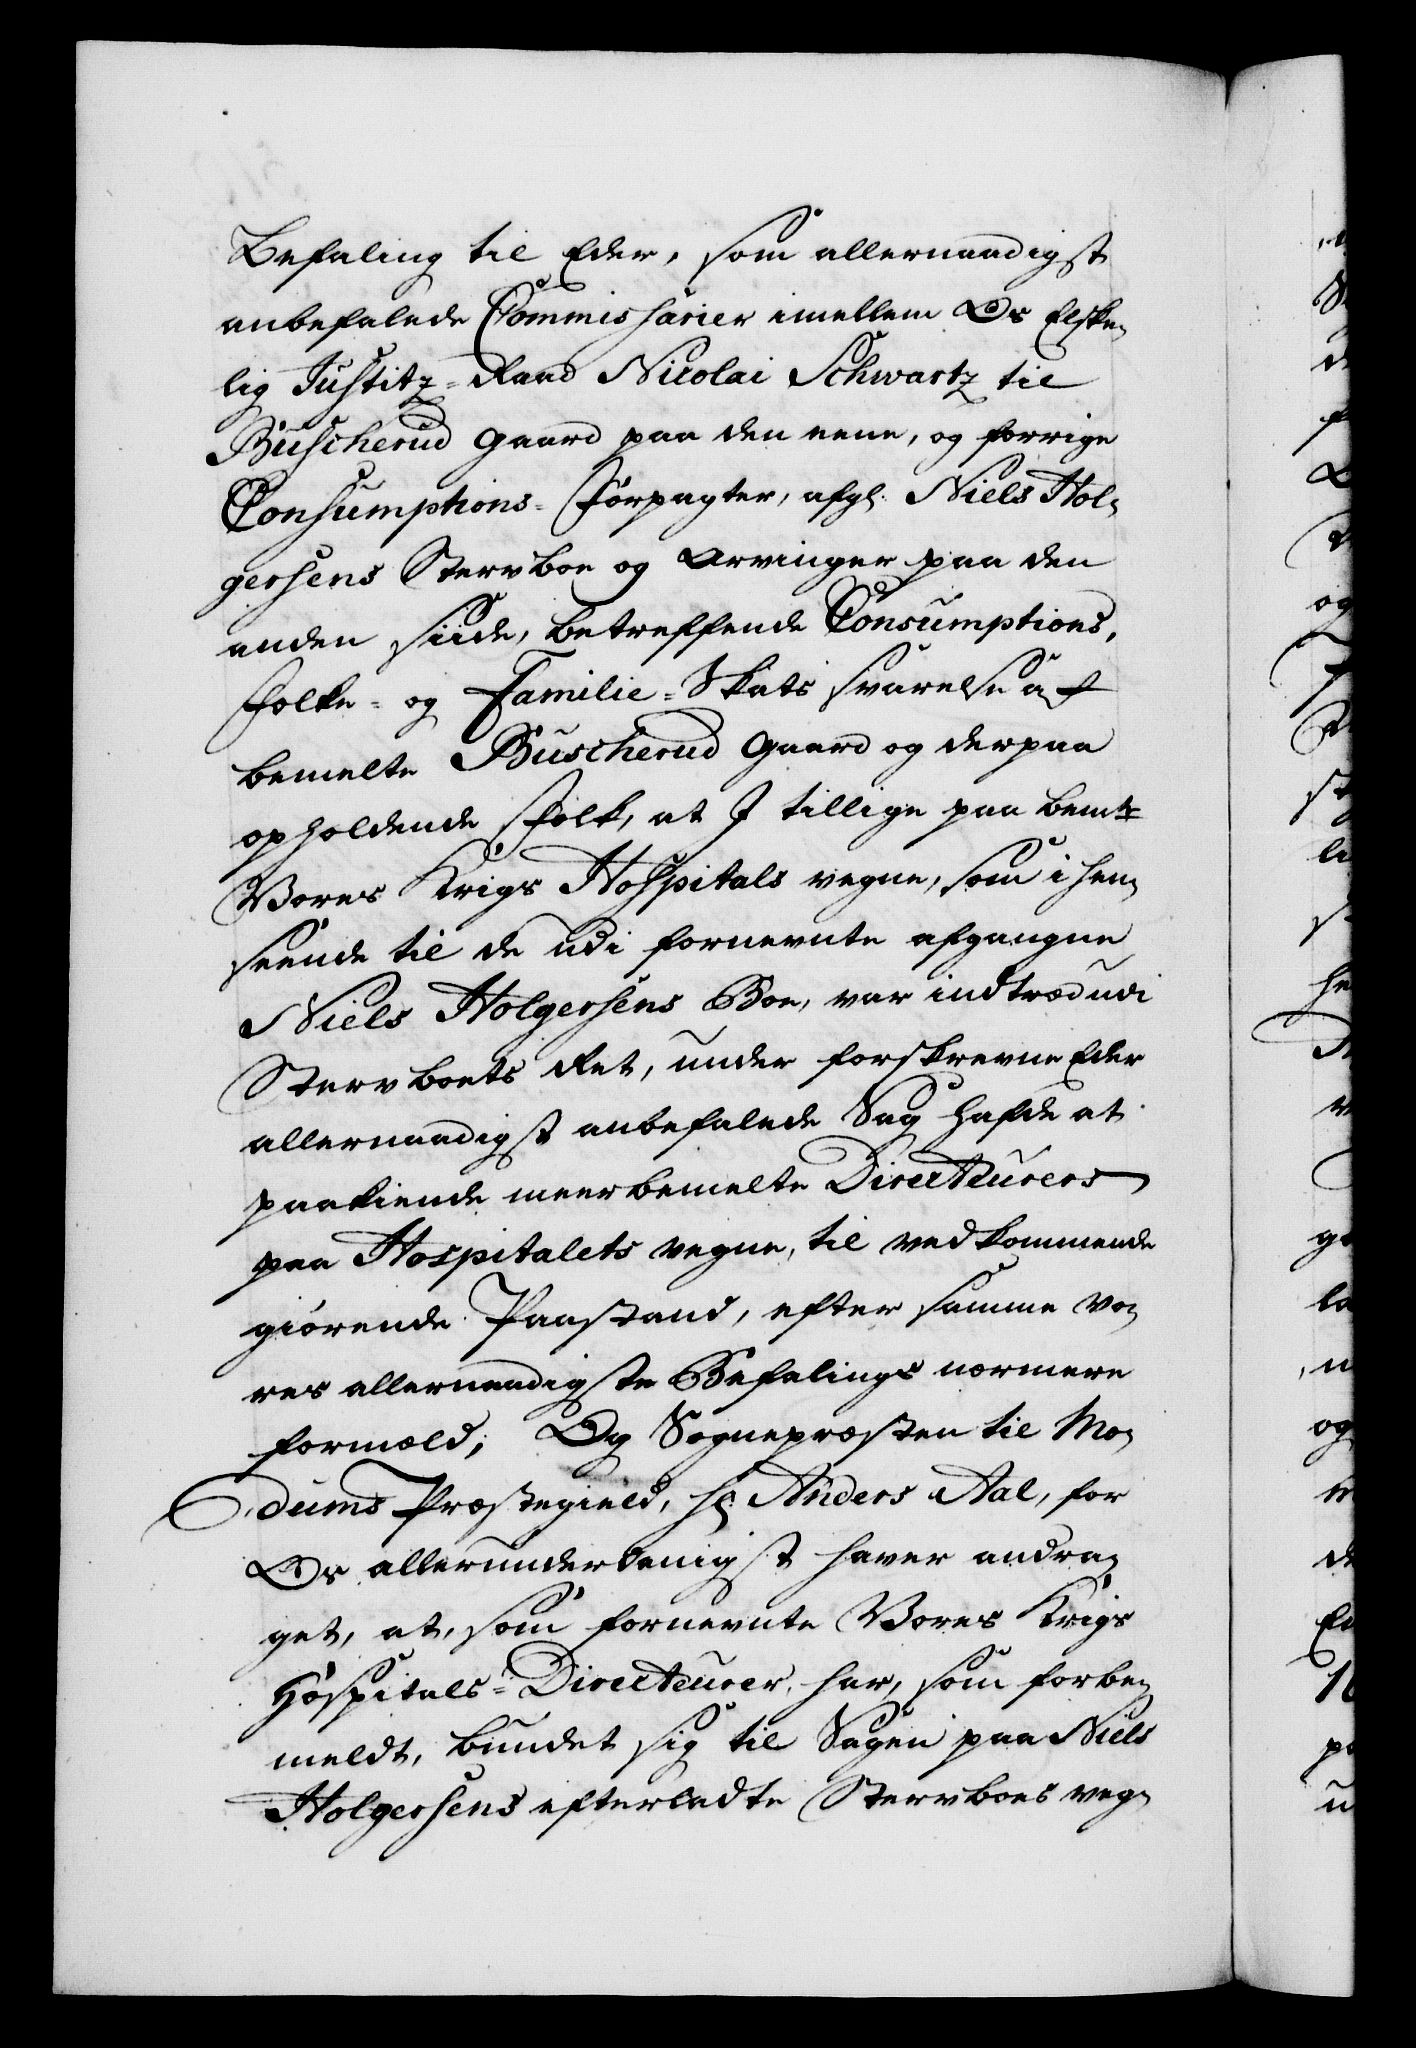 Befaling til Eder, som allernaadigst
anbefalede Commissarier imellem Os Elske¬
lig Justitz-Raad Nicolai Schwartz til
Buscherud Gaard paa den eene, og forrige
Consumptions-Forpagter, afgl. Niels Hol¬
gersens Stervboe og Arvinger paa den
anden siide, betreffende Consumptions,
Folke- og Familie-Skats svarelse af
bemelte Buscherud Gaard og derpaa
opholdende Folk, at I tillige paa bemte
Vores Krigs Hospitals vegne, som i hen¬
seende til de udi fornevnte afgangne
Niels Holgersens Boe, var indtræd udi
Stervboets Ret, under forskrevne Eder
allernaadigst anbefalede Sag hafde at
paakiende meerbemelte Directeurers
paa Hospitalets vegne, til vedkommende
giörende Paastand, efter samme Vo¬
res allernaadigste Befalings nærmere
formæld; Og Sognepræsten til Mo¬
dums Præstegield, Hr. Anders Aal, for
Os allerunderdanigst haver andra¬
get, at, som fornevnte Vores Krigs
Hospitals-Directeurer, har, som forbe¬
meldt, bundet sig til Sagen paa Niels
Holgersens efterladte Stervboes veg¬